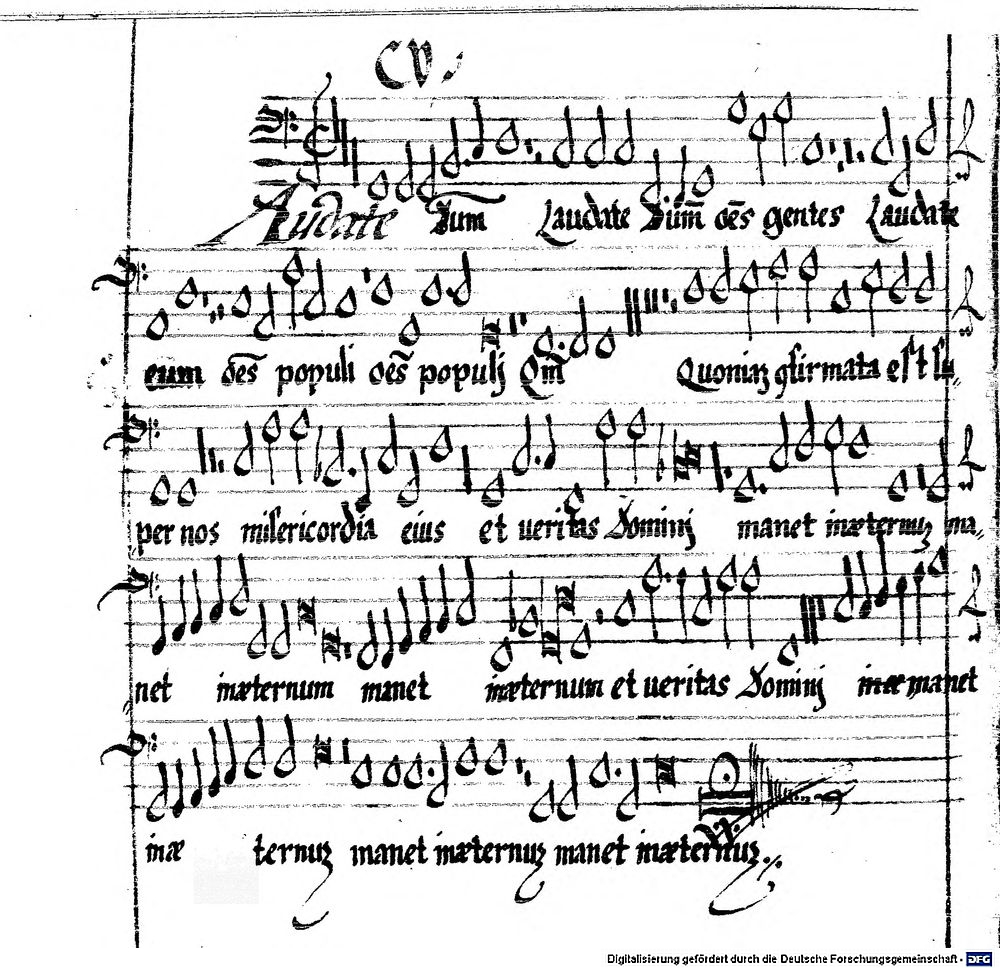 CV.
Laudate Dum̃ Laudate Dium̃ oẽs gentes Laudate
eum oẽs populi oẽs populj Qm̃ Quoniaʒ ꝯfirmata est su,,
per nos misericordia eius et ueritas Dominj manet inæternuʒ ma,,
net inæternum manet inæternum et ueritas Dominj inæ manet
inæ ternuʒ manet inæternuʒ manet inæternuʒ.
Digitalisierung gefördert durch die Deutsche Forschungsgemeinschaft - DFG